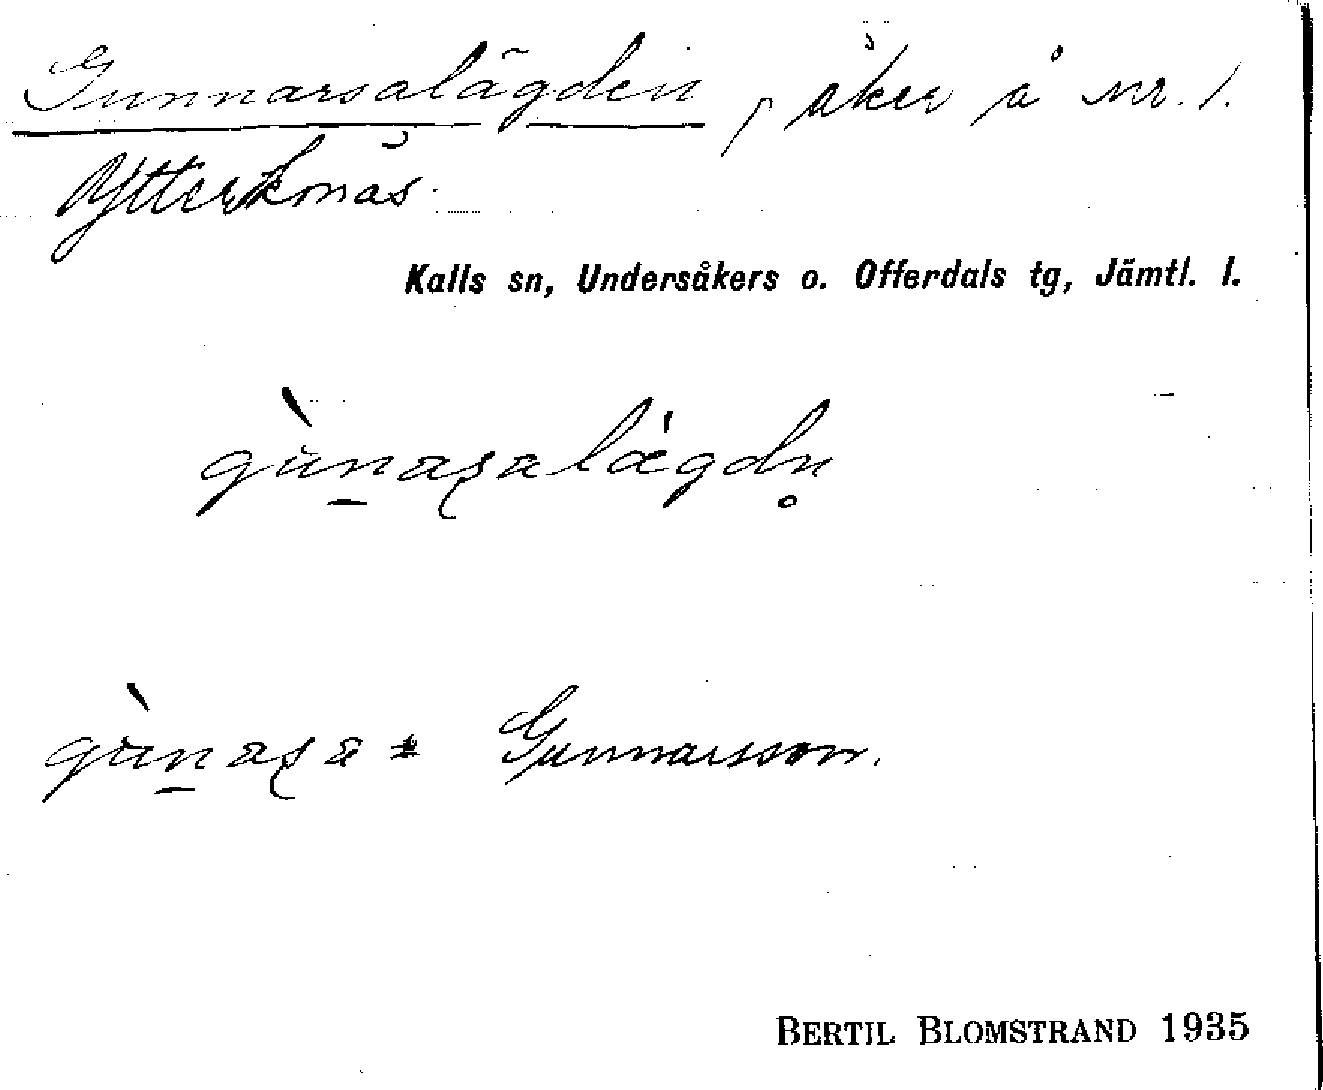 Gunnarsalägden, åker å nr. 1.
Ytterkonäs.
Kalls sn, Undersåkers o. Offerdals tg, Jämtl. l.
gùn̲aʂalǽgdn̥
gùn̲aʂa = Gunnarsson.
BERTIL BLOMSTRAND 1935